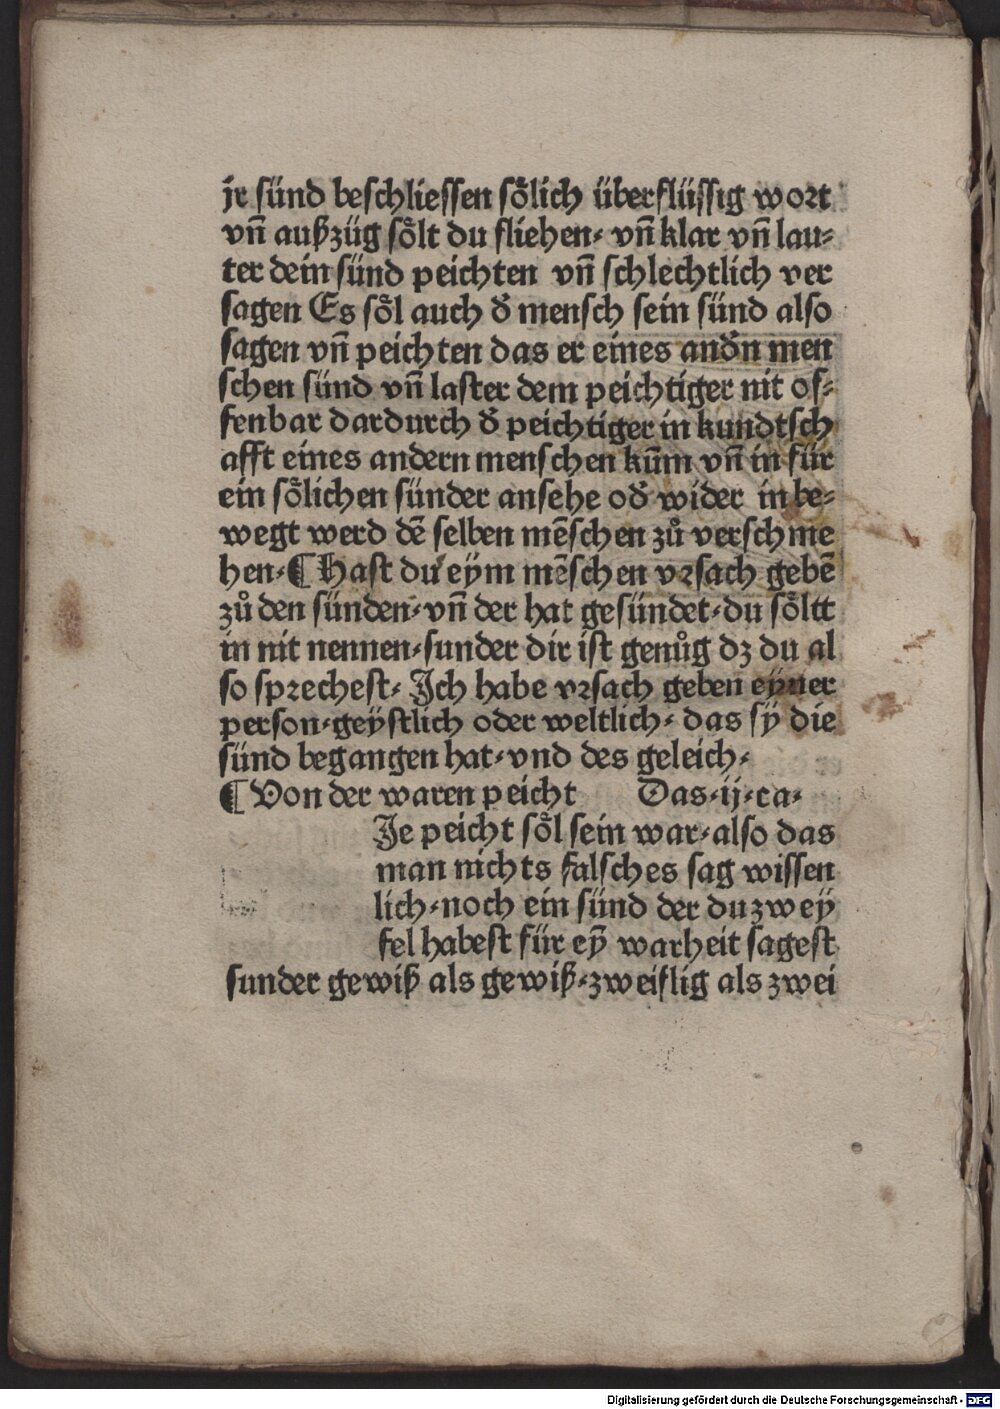 jr sünd beschliessen soͤlich überflüssig wort
vn̄ außzüg soͤlt du fliehen· vn̄ klar vn̄ lau-
ter dein sünd peichten vn̄ schlechtlich ver
sagen Es soͤl auch d̕ mensch sein sünd also
sagen vn̄ peichten das er eines and̕n men
schen sünd vn̄ laster dem peichtiger nit of-
fenbar dardurch d̕ peichtiger in kundtsch
afft eines andern menschen kūm vn̄ in für
ein soͤlichen sünder ansehe od̕ wider in be-
wegt werd dē selben mēschen zuͦ verschme
hen·¶ Hast du eym mēschen vrsach gebē
zuͦ den sünden· vn̄ der hat gesündet· du soͤltt
in nit nennen· sunder dir ist genuͦg dz du al
so sprechest· Ich habe vrsach geben eyner
person· geÿstlich oder weltlich· das sÿ die
sünd begangen hat· vnd des geleich·
¶ Von der waren peicht Das·ij·ca·
Je peicht soͤl sein war· also das
man nichts falsches sag wissen
lich· noch ein sünd der du zweÿ
fel habest für eȳ warheit sagest
sunder gewiß als gewiß· zweiflig als zwei
Digitalisierung gefördert durch die Deutsche Forschungsgemeinschaft - DFG